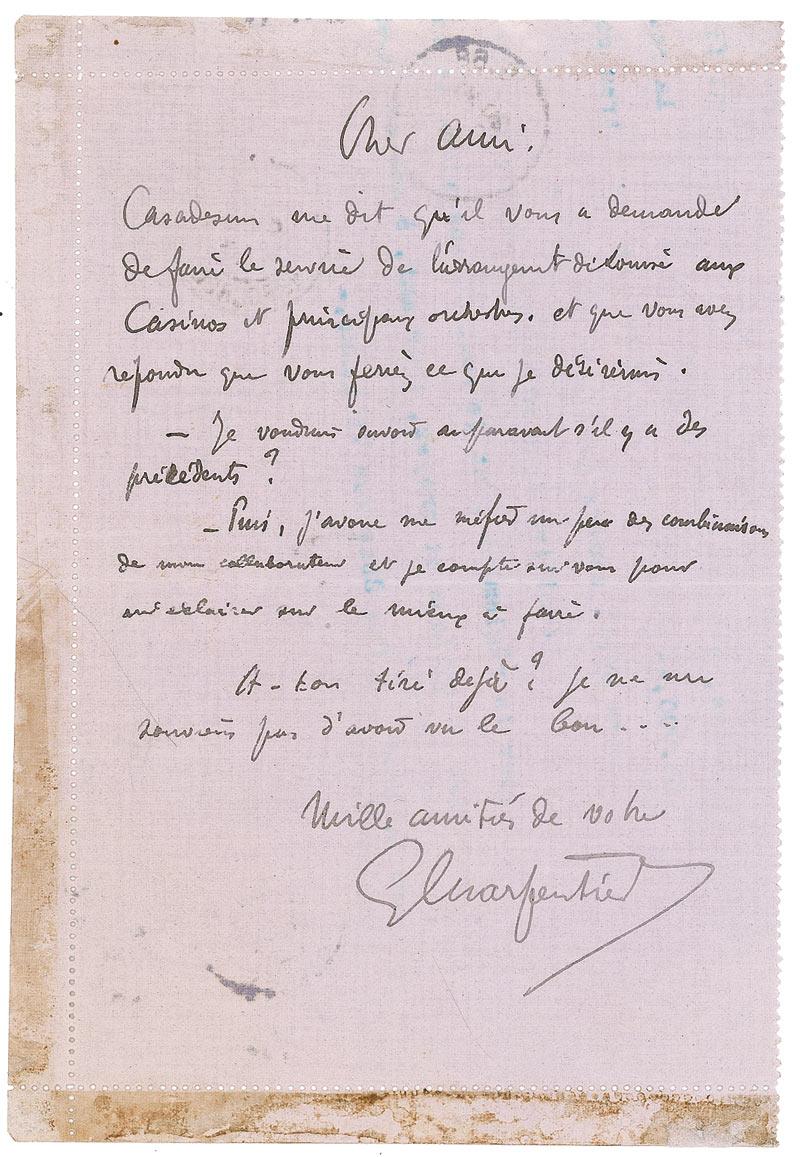 Cher ami.
Casadesus me dit qu'il vous a demandé
de faire le service de l'arrangement de Louise aux
Casinos et principaux orchestres. et que vous avez
repondu que vous feriez ce que je désirerais.
— Je voudrais savoir auparavant s'il y a des
précédents ?
— Puis, j'avoue me méfier un peu des combinaisons
de mon collaborateur et je compte sur vous pour
m'éclairer sur le mieux à faire.
A-t-on tiré dejà ? je ne me
souviens pas d'avoir vu le bon ....
Mille amitiés de votre
G Charpentier